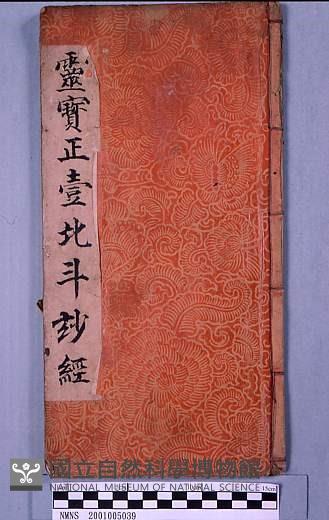 靈寶正壹北斗玅經
國立自然科學博物館
NATIONAL MUSEUM OF NATURAL SCIENCE 15cm
NMNS 2001005039